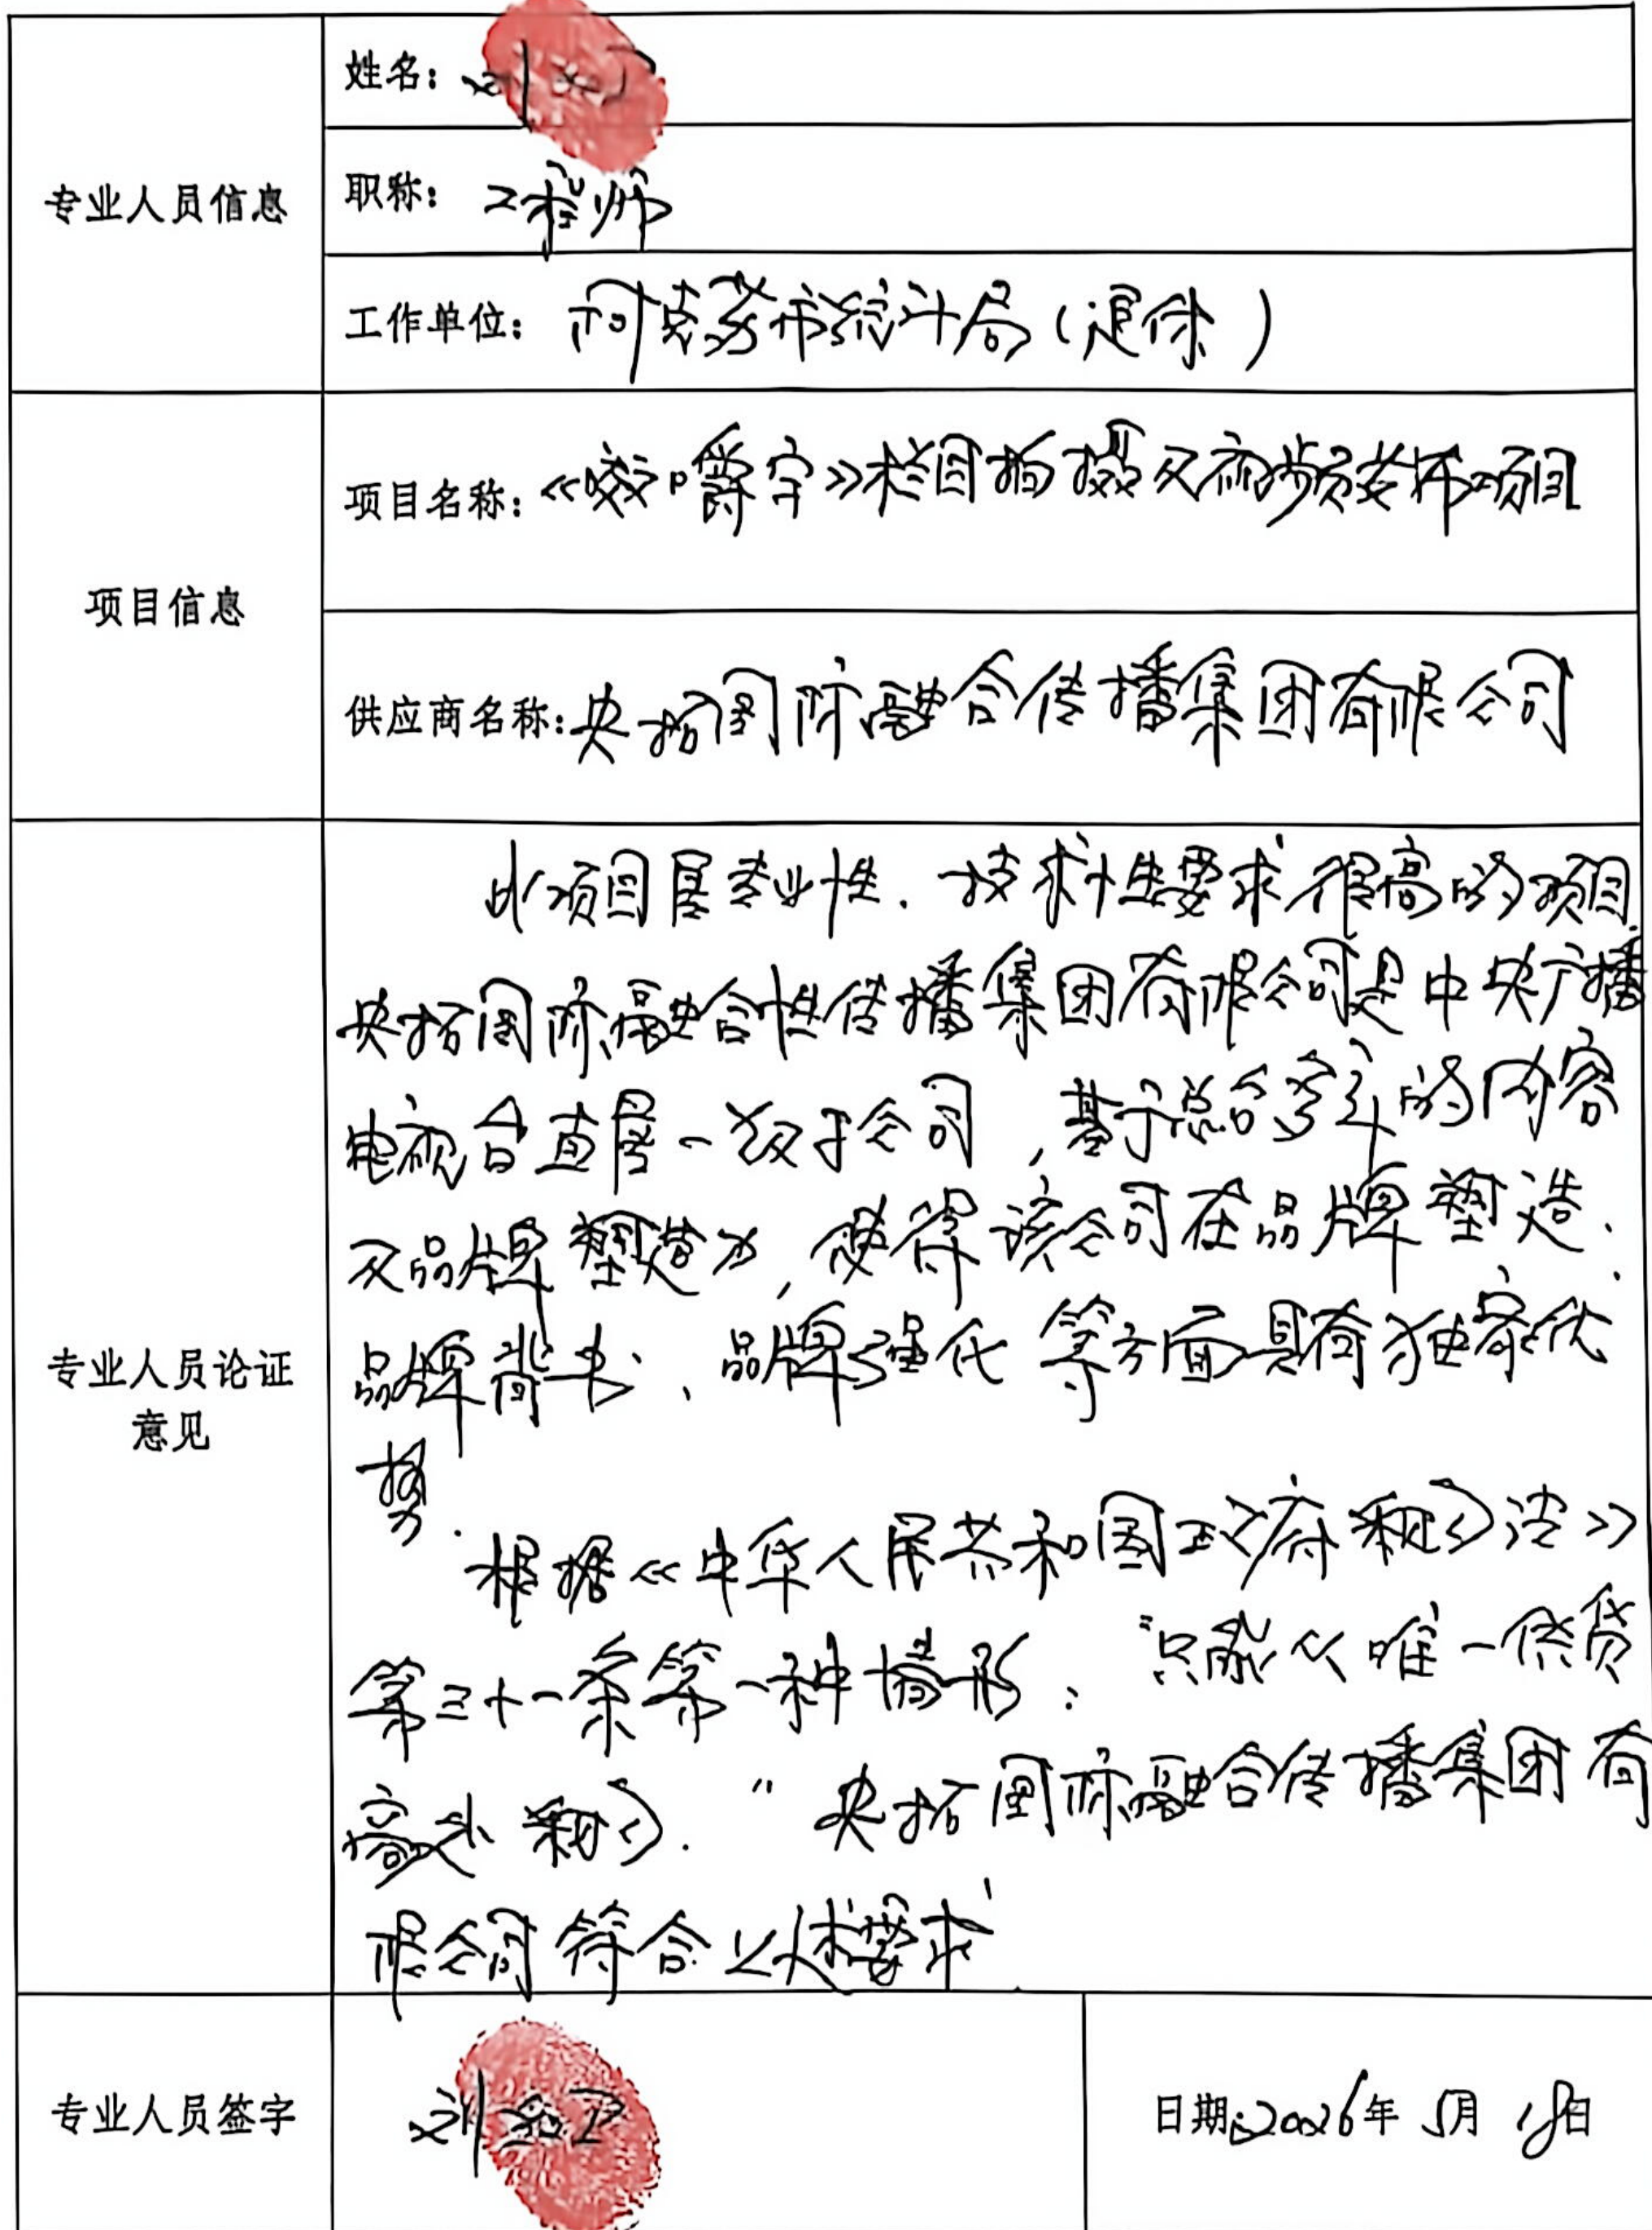 专业人员信息
姓名：刘
职称：工程师
工作单位：阿克苏市统计局（退休）
项目信息
项目名称：《咬文嚼字》栏目拍摄及视频发布项目
供应商名称：央拓国际融合传播集团有限公司
专业人员论证
意见
此项目属专业性、技术性要求很高的项目
央拓国际融合性传播集团有限公司是中央广播
电视台直属一级子公司，基于总台多年的内容
及品牌塑造力，使得该公司在品牌塑造、
品牌背书、品牌强化等方面具有独家优
势.
根据《中华人民共和国政府采购法》
第三十一条第一种情形："只能从唯一供货
商处采购."央拓国际融合传播集团有
限公司符合以上述要求
专业人员签字
刘
日期：2026年5月18日